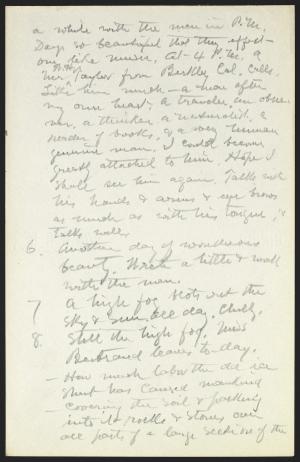 a while with the men in P.M.
Days so beautiful that they affect
one like music. At 4 P.M. a
Mr. Taylor from Berkley Cal. calls.
Like him much - a man after
my own heart, a traveler, an obser-
ver, a thinker, a naturalist, a
reader of books, & a very human
genuine man. I could become
greatly attached to him. Hope I
shall see him again. Talks with
his hands & arms & eye brows
as much as with his tongue, &
talks well.
6. Another day of wondrous
beauty. Write a little & walk
with the men.
7 A high fog blots out the
sky & sun all day. Chilly.
8. Still the high fog. Miss
leaves to-day.
- How much labor the old ice
sheet has caused mankind
- covering the soil & packing
into it rocks & stones over
all parts of a large section of the